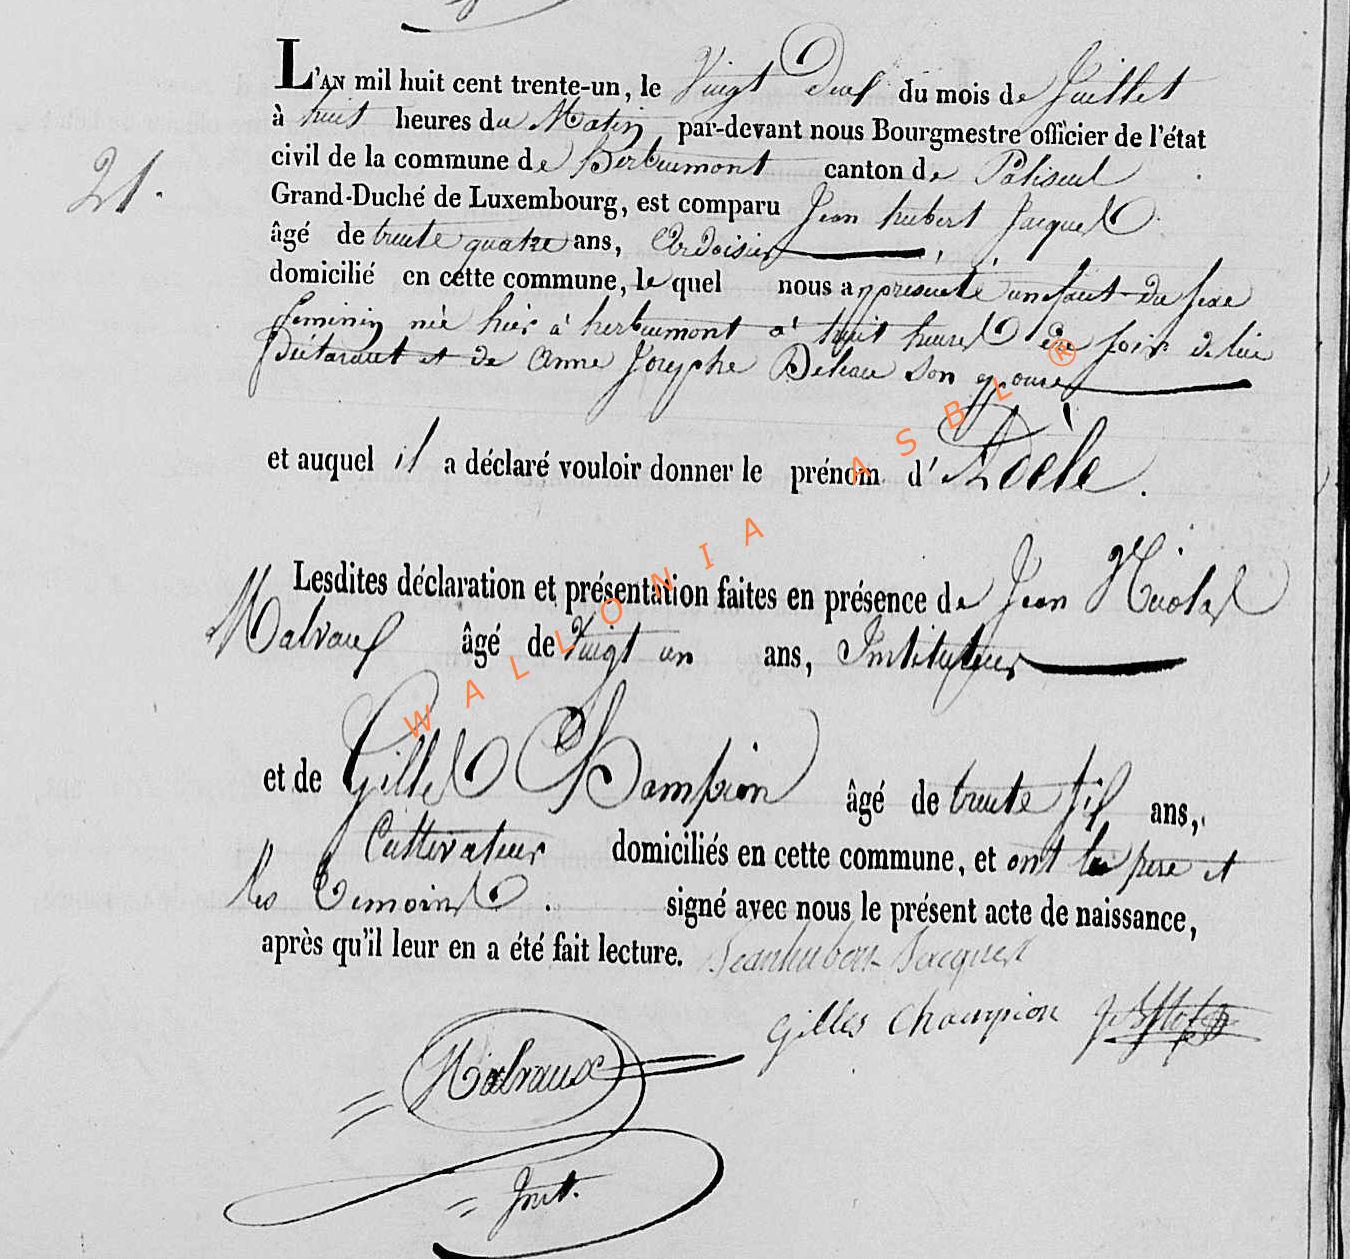 L'AN mil huit cent trente-un, le Vingt Deux du mois de Juillet
à huit heures du Matin, par-devant nous Bourgmestre officier de l'état
civil de la commune de Herbeumont canton de Paliseul
21.
Grand-Duché de Luxembourg, est comparu Jean hubert Jacques
âgé de trente quatre ans, Ardoisier,
domicilié en cette commune, le quel nous a presenté un enfant du sexe
feminin née hier à herbeumont à huit heures du soir de lui
Déclarant et de Anne Josephe Deleau son epouse
et auquel il a déclaré vouloir donner le prénom d'Adèle.
Lesdites déclaration et présentation faites en présence de Jean Nicolas
Malvaux âgé de Vingt un ans, Instituteur
et de Gilles Champion âgé de trente six ans,
Cultivateur domiciliés en cette commune, et ont le pere et
les temoins. signé avec nous le présent acte de naissance,
après qu'il leur en a été fait lecture. Jeanhubert Jacques
Gilles Champion
Malvaux
Inst.
WALLONIA ASBL ®